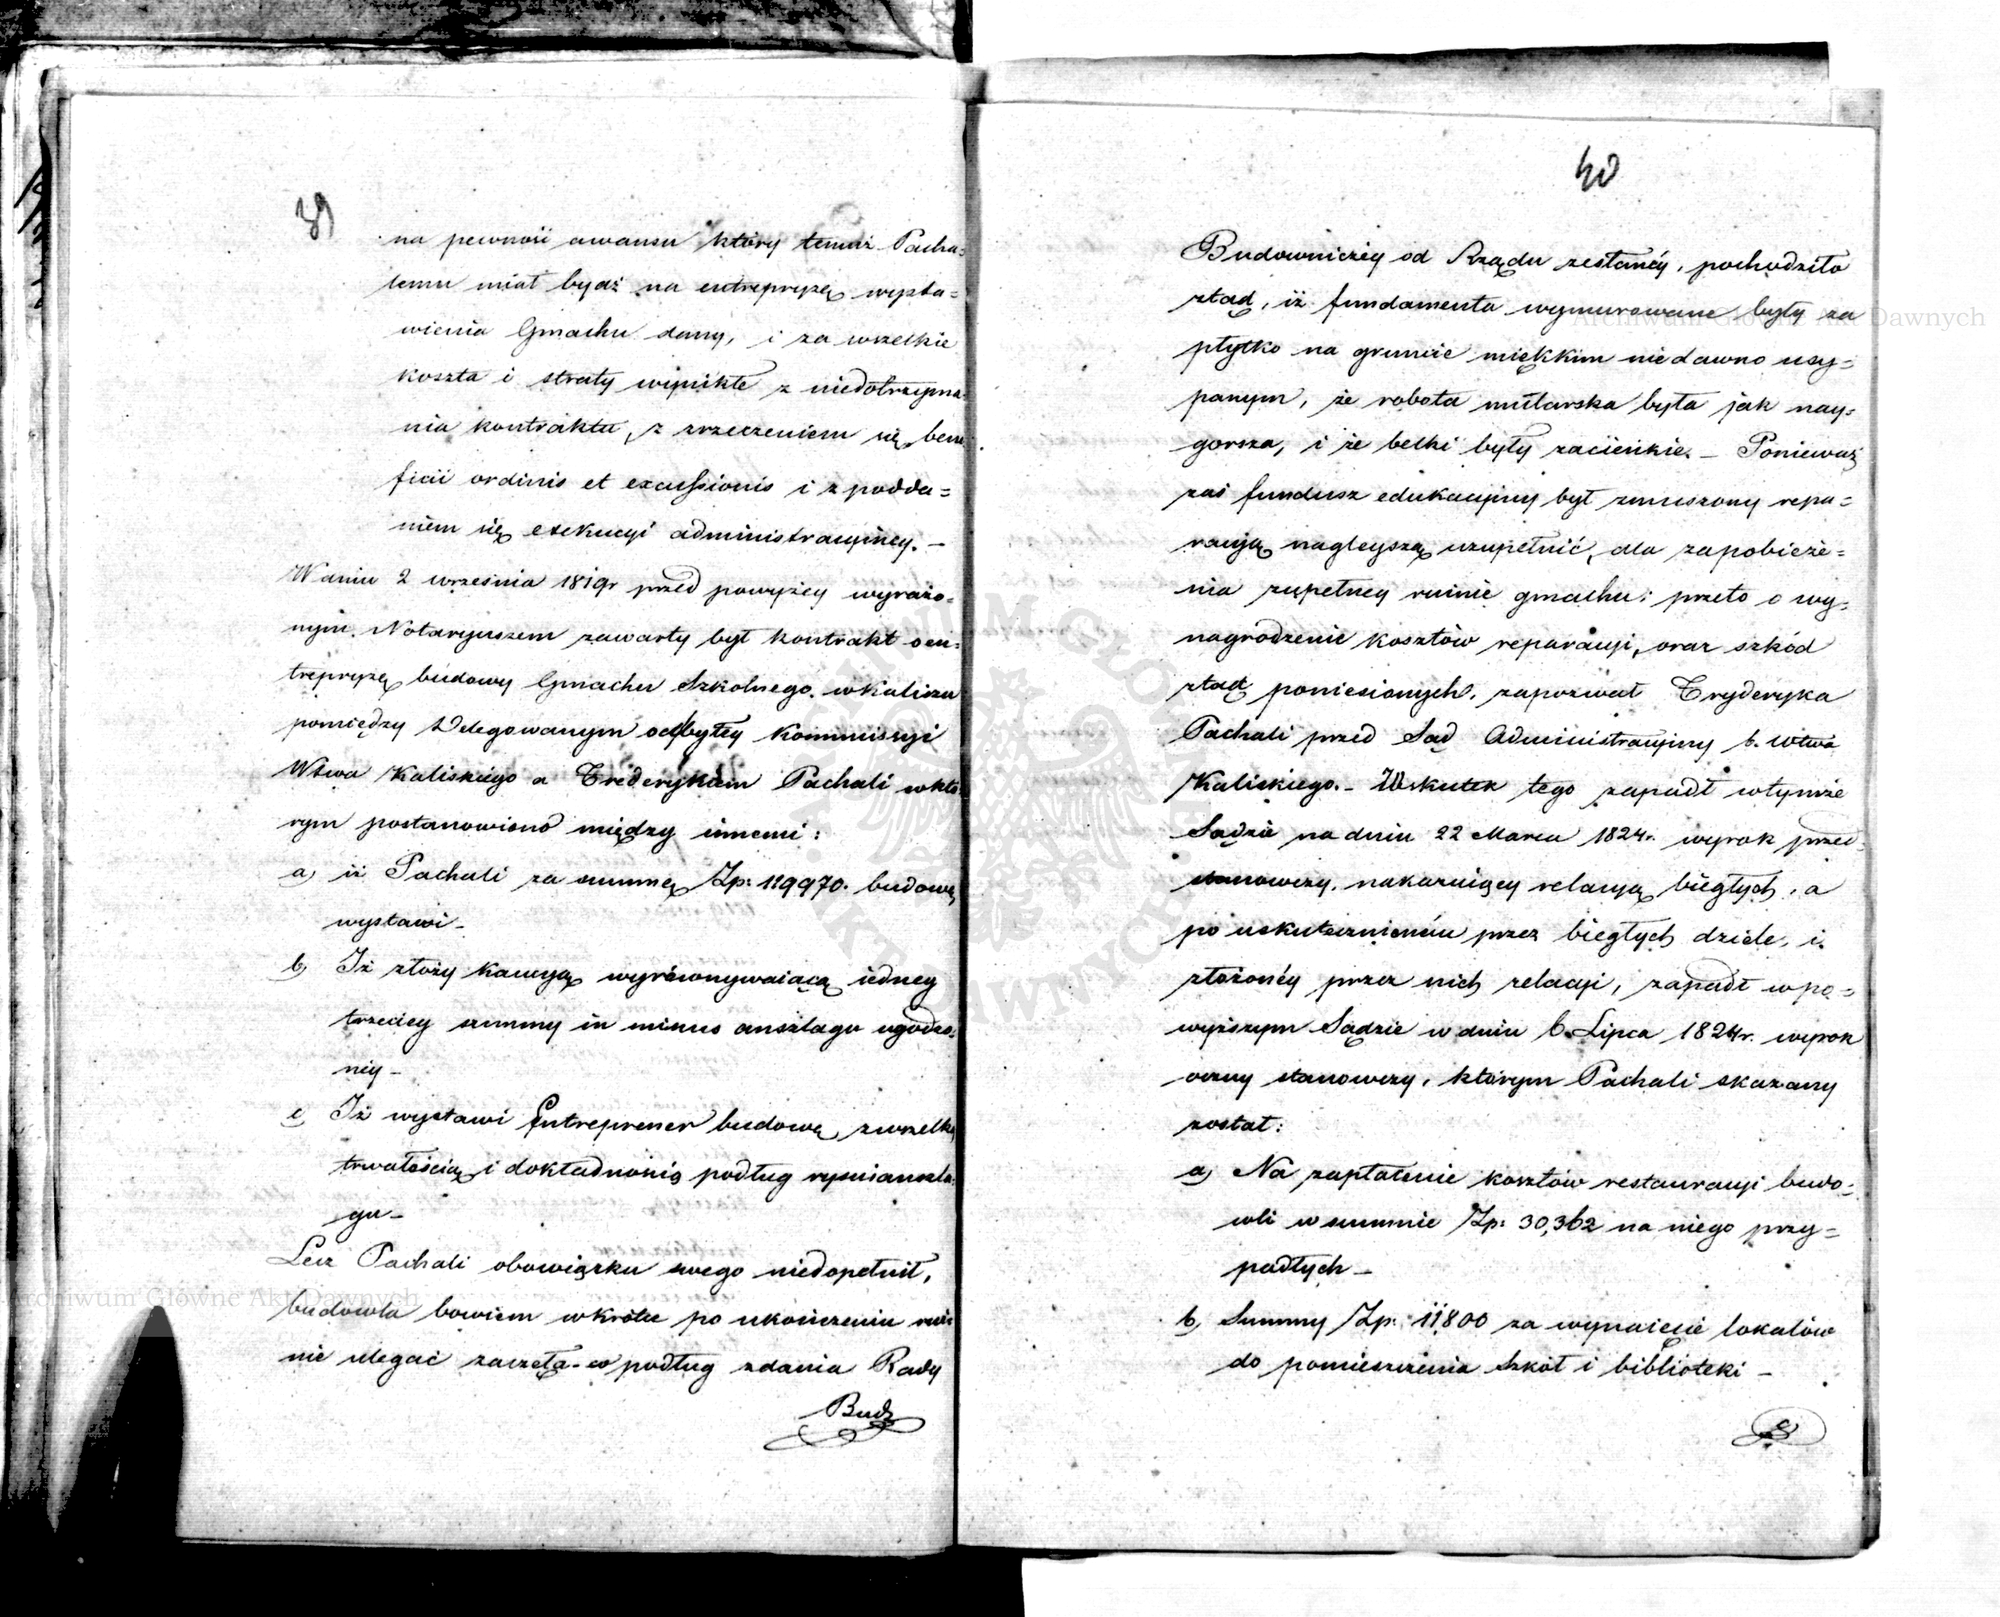 39
na pewność awansu który temuż Pacha=
lemu miał bydź na entrepryzę wysta=
wienia Gmachu dany, i za wszelkie
koszta i straty wynikłe z niedotrzyma=
nia kontraktu, z zrzeczeniem się bene
ficii ordinis et excussionis i z podda=
niem się exekucyi administracyiney. —
W dniu 2 września 1819r przed powyżey wyrażo=
nym Notaryuszem zawarty był kontrakt o en=
trepryzę budowy Gmachu Szkolnego w Kaliszu
pomiędzy Delegowanym od byłey Kommissyi
Wtwa Kaliskiego a Fryderykiem Pachali w któ
rym postanowiono między innemi:
a) iż Pachali za summę Zp: 119970. budowę
wystawi —
b) Iż złoży kaucyą wyrównywaiącą iedney
trzeciey summy in minus anszlagu ugodzo=
ney —
c Iż wystawi Entreprener budowę z wszelką
trwałością i dokładnością podług rysu i anszla=
gu —
Lecz Pachali obowiązku swego niedopełnił,
budowla bowiem wkrótce po ukończeniu rui=
nie ulegać zaczęła - co podług zdania Rady
Bud
40
Budowniczey od Rządu zesłanéy, pochodziło
ztąd, iż fundamenta wymurowane były za
płytko na gruncie miękkim niedawno usy=
panym, że robota mularska była jak nay=
gorsza, i że belki były zacienkie. — Ponieważ
zaś fundusz edukacyiny był zmuszony repa=
racyą nagleyszą uzupełnić, dla zapobieże=
nia zupełney ruinie gmachu; przeto o wy=
nagrodzenie kosztów reparacyi, oraz szkód
ztąd poniesionych, zapozwał Fryderyka
Pachali przed Sąd Administracyiny b. Wtwa
Kaliskiego. — Wskutek tego zapadł w tymże
Sądzie na dniu 22 Marca 1824r. wyrok przed=
stanowczy, nakazuiący relacyą biegłych, a
po uskutecznieniu przez biegłych dziele, i
złożonéy przez nich relacyi, zapadł w po=
wyższym Sądzie w dniu 6 Lipca 1824r. wyrok
oczny stanowczy, którym Pachali skazany
został:
a) Na zapłacenie kosztów restauracyi budo=
wli w summie Zp: 30,362 na niego przy=
padłych —
b) Summy Zp: 11800 za wynaięcie lokalów
do pomieszczenia Szkół i biblioteki —
c)
Archiwum Główne Akt Dawnych